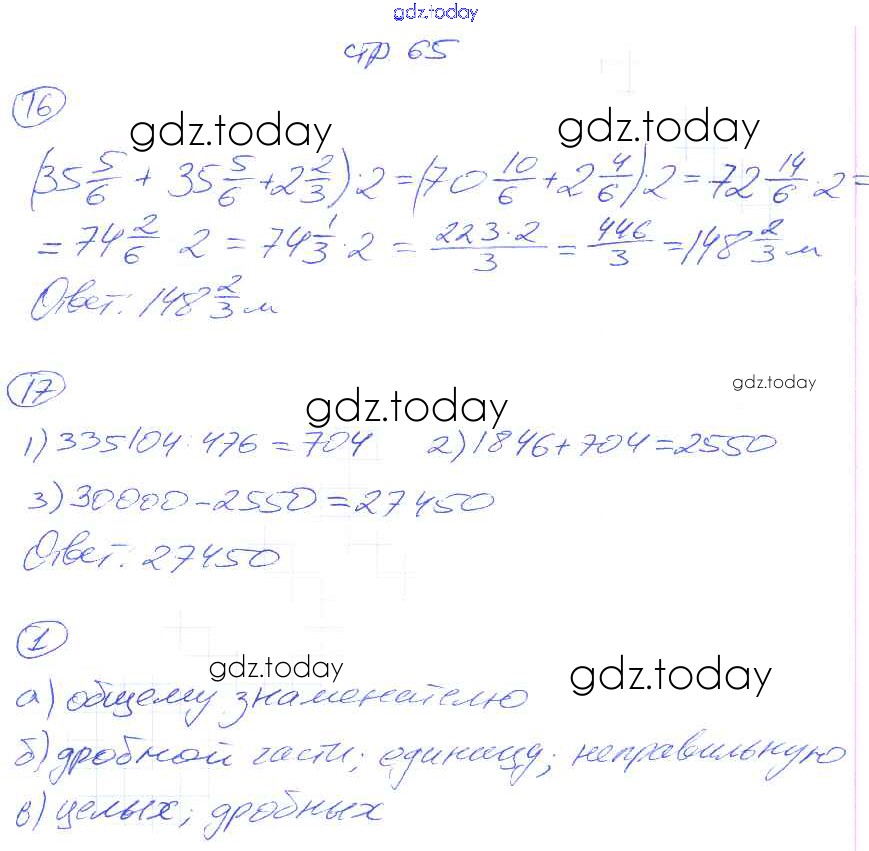 gdz.today
стр 65
16
gdz.today gdz.today
(35 5/6 + 35 5/6 + 2 2/3)·2 = (70 10/6 + 2 4/6)·2 = 72 14/6·2 =
= 74 2/6 2 = 74 1/3·2 = 223·2/3 = 446/3 = 148 2/3 м
Ответ: 148 2/3 м
17
gdz.today gdz.today
1) 335104:476 = 704 2) 1846+704=2550
3) 30000-2550=27450
Ответ: 27450
1
gdz.today gdz.today
а) общему знаменателю
б) дробной части; единицу; неправильную
в) целых; дробных